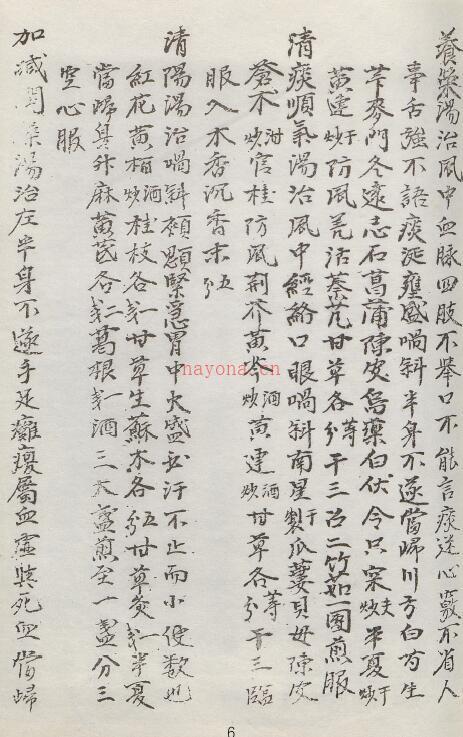 養榮湯治風中血脉四肢不舉口不能言痰迷心竅不省人
事舌強不語痰涎壅盛喎斜半身不遂當歸川芎白芍生
芐麥門冬遠志石菖蒲陳皮烏藥白伏令只宲炒夫半夏炒于
黃連炒于防風羌活秦艽甘草各等分干三召二竹茹一團煎服
清痰順氣湯治風中經絡口眼喎斜南星製于瓜蔞貝母陳皮
蒼朮炒泔官桂防風荆芥黃芩炒酒黃連炒酒甘草各等分干三臨
服入木香沉香末五分
清陽湯治喎斜頰顋緊急胃中火盛必汗不止而小便数也
紅花黃栢炒酒桂枝各戔一甘草生蘇木各五分甘草炙戔一半夏
當歸身升麻黃芪各戔二葛根戔一酒三大盞煎至一盞分三
空心服
加减閏藥湯治左半身不遂手足癱瘓屬血虛與死血當歸
nayona.cn
6